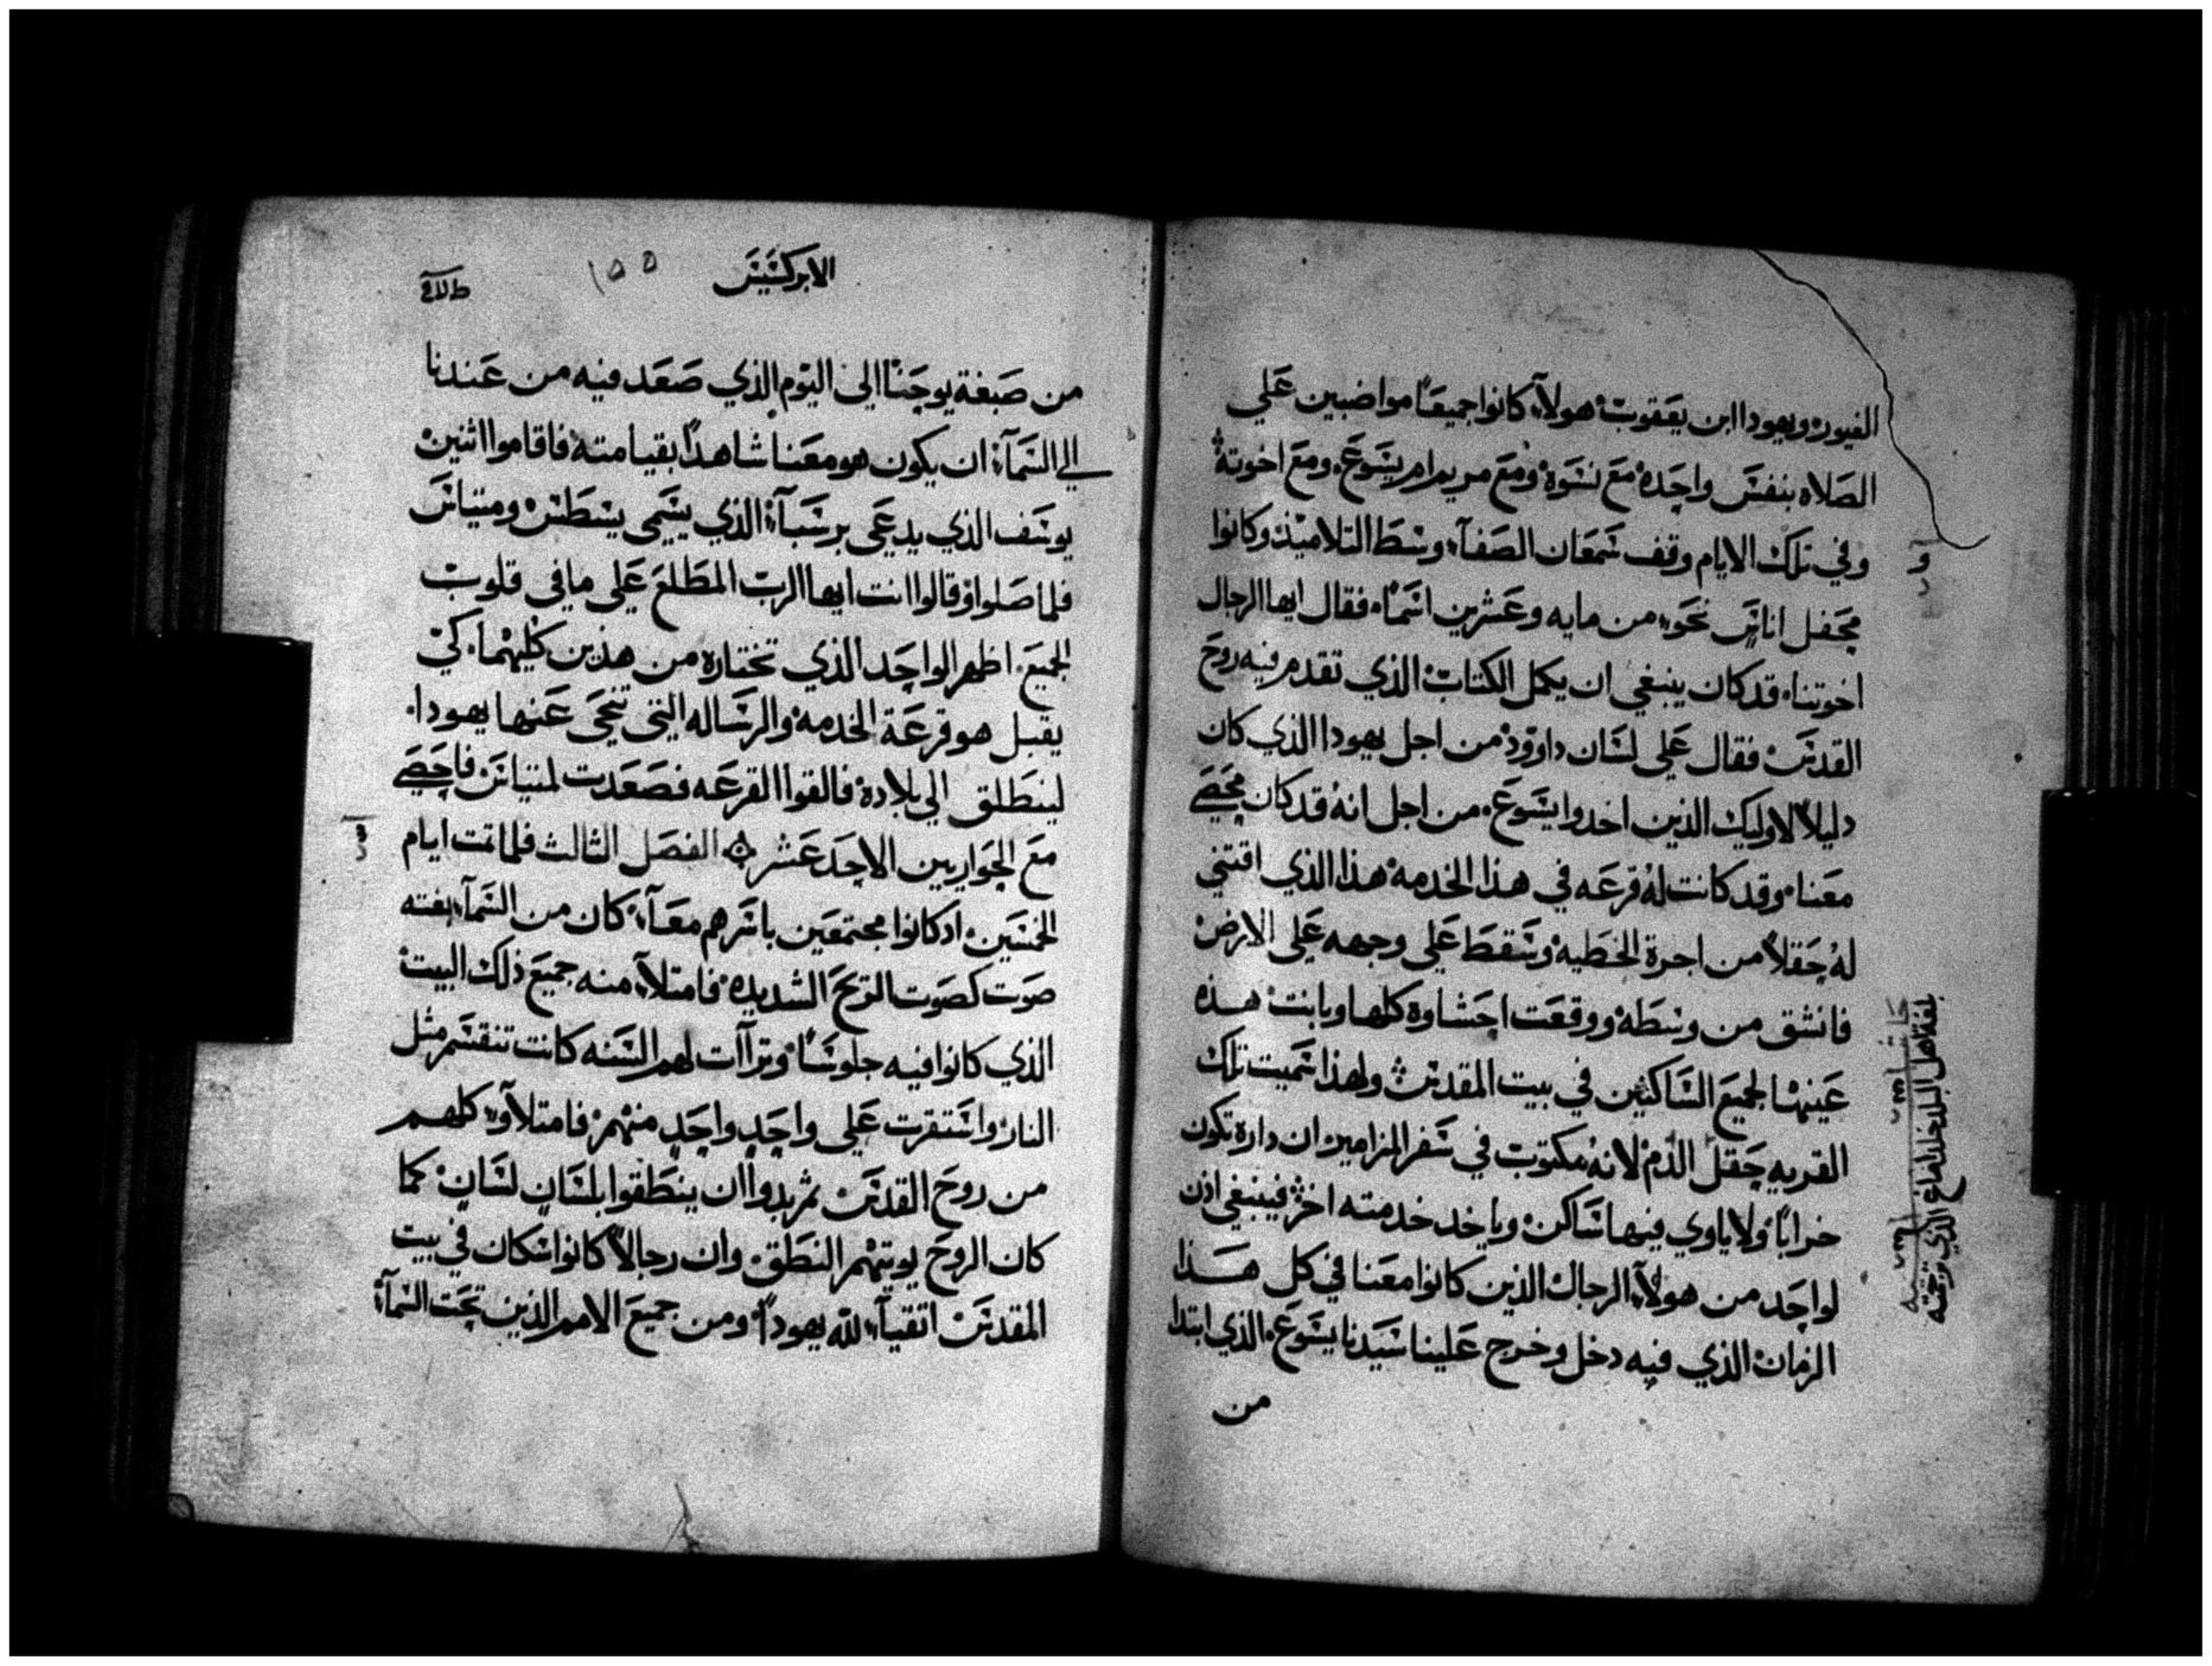 الغيور ويهودا ابن يعقوب هولآء كانوا جميعًا مواضبين علي
الصلاه بنفس واحده مع نسوة ومع مريم ام يسوع ومع اخوته
وفي تلك الايام وقف شمعان الصفآء وسط التلاميذ وكانوا
محفل اناس نحو من مايه وعشرين اسمًا فقال ايها الرجال
اخوتنا قد كان ينبغي ان يكمل الكتاب الذي تقدم فيه روح
القدس فقال علي لسان داوود من اجل يهودا الذي كان
دليلاً لاوليك الذين اخدوا يسوع من اجل انه قد كان محصي
معنا وقد كانت له قرعه في هذا الخدمه هذا الذي اقتني
له حقلاً من اجرة الخطيه وسقط علي وجهه علي الارض
فانشق من وسطه ووقعت احشاوه كلها وبانت هذه
عينها لجميع الساكنين في بيت المقدس ولهذا سميت تلك
القريه حقل الدم لانه مكتوب في سفر المزامير ان داره تكون
خرابًا ولا ياوي فيها ساكن وياخد خدمته اخر فينبغي اذن
لواحد من هولآء الرجال الذين كانوا معنا في كل هذا
الزمان الذي فيه دخل وخرج علينا سيدنا يسوع الذي ابتدا
من
و
بلغة اهل البلد حقل دماخ الذي ترجمته
الابركسيس
١٥٥
من صبغة يوحنا الي اليوم الذي صعد فيه من عندنا
الي السمآء ان يكون هو معنا شاهدًا بقيامته فاقاموا اثنين
يوسف الذي يدعي برسبآء الذي يسمي يسطس ومتياس
فلما صلوا وقالوا انت ايها الرب المطلع علي ما في قلوب
الجميع اظهر الواحد الذي تختاره من هذين كليهما كي
يقبل هو قرعة الخدمه والرساله التي تنحي عنها يهودا
لينطلق الي بلاده فالقوا القرعه فصعدت لمتياس فاحصي
مع الحواريين الاحد عشر الفصل الثالث فلما تمت ايام
الخمسين اد كانوا مجتمعين باسرهم معآء كان من السمآء بغته
صوت كصوت الريح الشديده فامتلآء منه جميع ذلك البيت
الذي كانوا فيه جلوسًا وترآات لهم السنه كانت تنقسم مثل
النار واستقرت علي واحدٍ واحدٍ منهم فامتلآو كلهم
من روح القدس ثم بدوا ان ينطقوا بلسانٍ لسانٍ كما
كان الروح يوتيهم النطق وان رجالاً كانوا سكان في بيت
المقدس اتقيآء لله يهودًا ومن جميع الامم الذين تحت السمآء